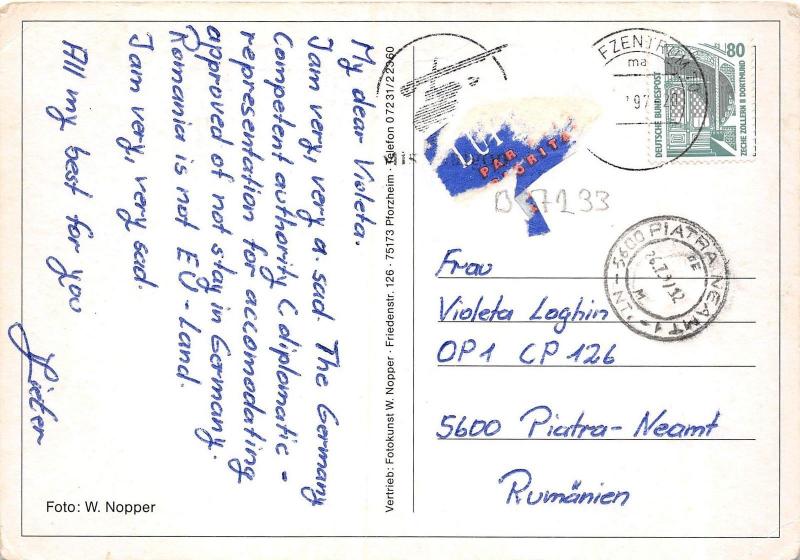 My dear Violeta.
I am very, very a sad. The Germany
Competent authority (diplomatic -
representation for accomodating
approved of not stay in Germany.
Romania is not EU - Land.
I am very, very sad.
All my best for you
Dieter
Foto: W. Nopper
Vertrieb: Fotokunst W. Nopper · Friedenstr. 126 · 75173 Pforzheim · Telefon 07231/22360
PAR
B 7233
80
DEUTSCHE BUNDESPOST
ZECHE ZOLLERN II DORTMUND
5600 PIATRA NEAMT 1
Frau
Violeta Loghin
OP1 CP 126
5600 Piatra-Neamt
Rumänien